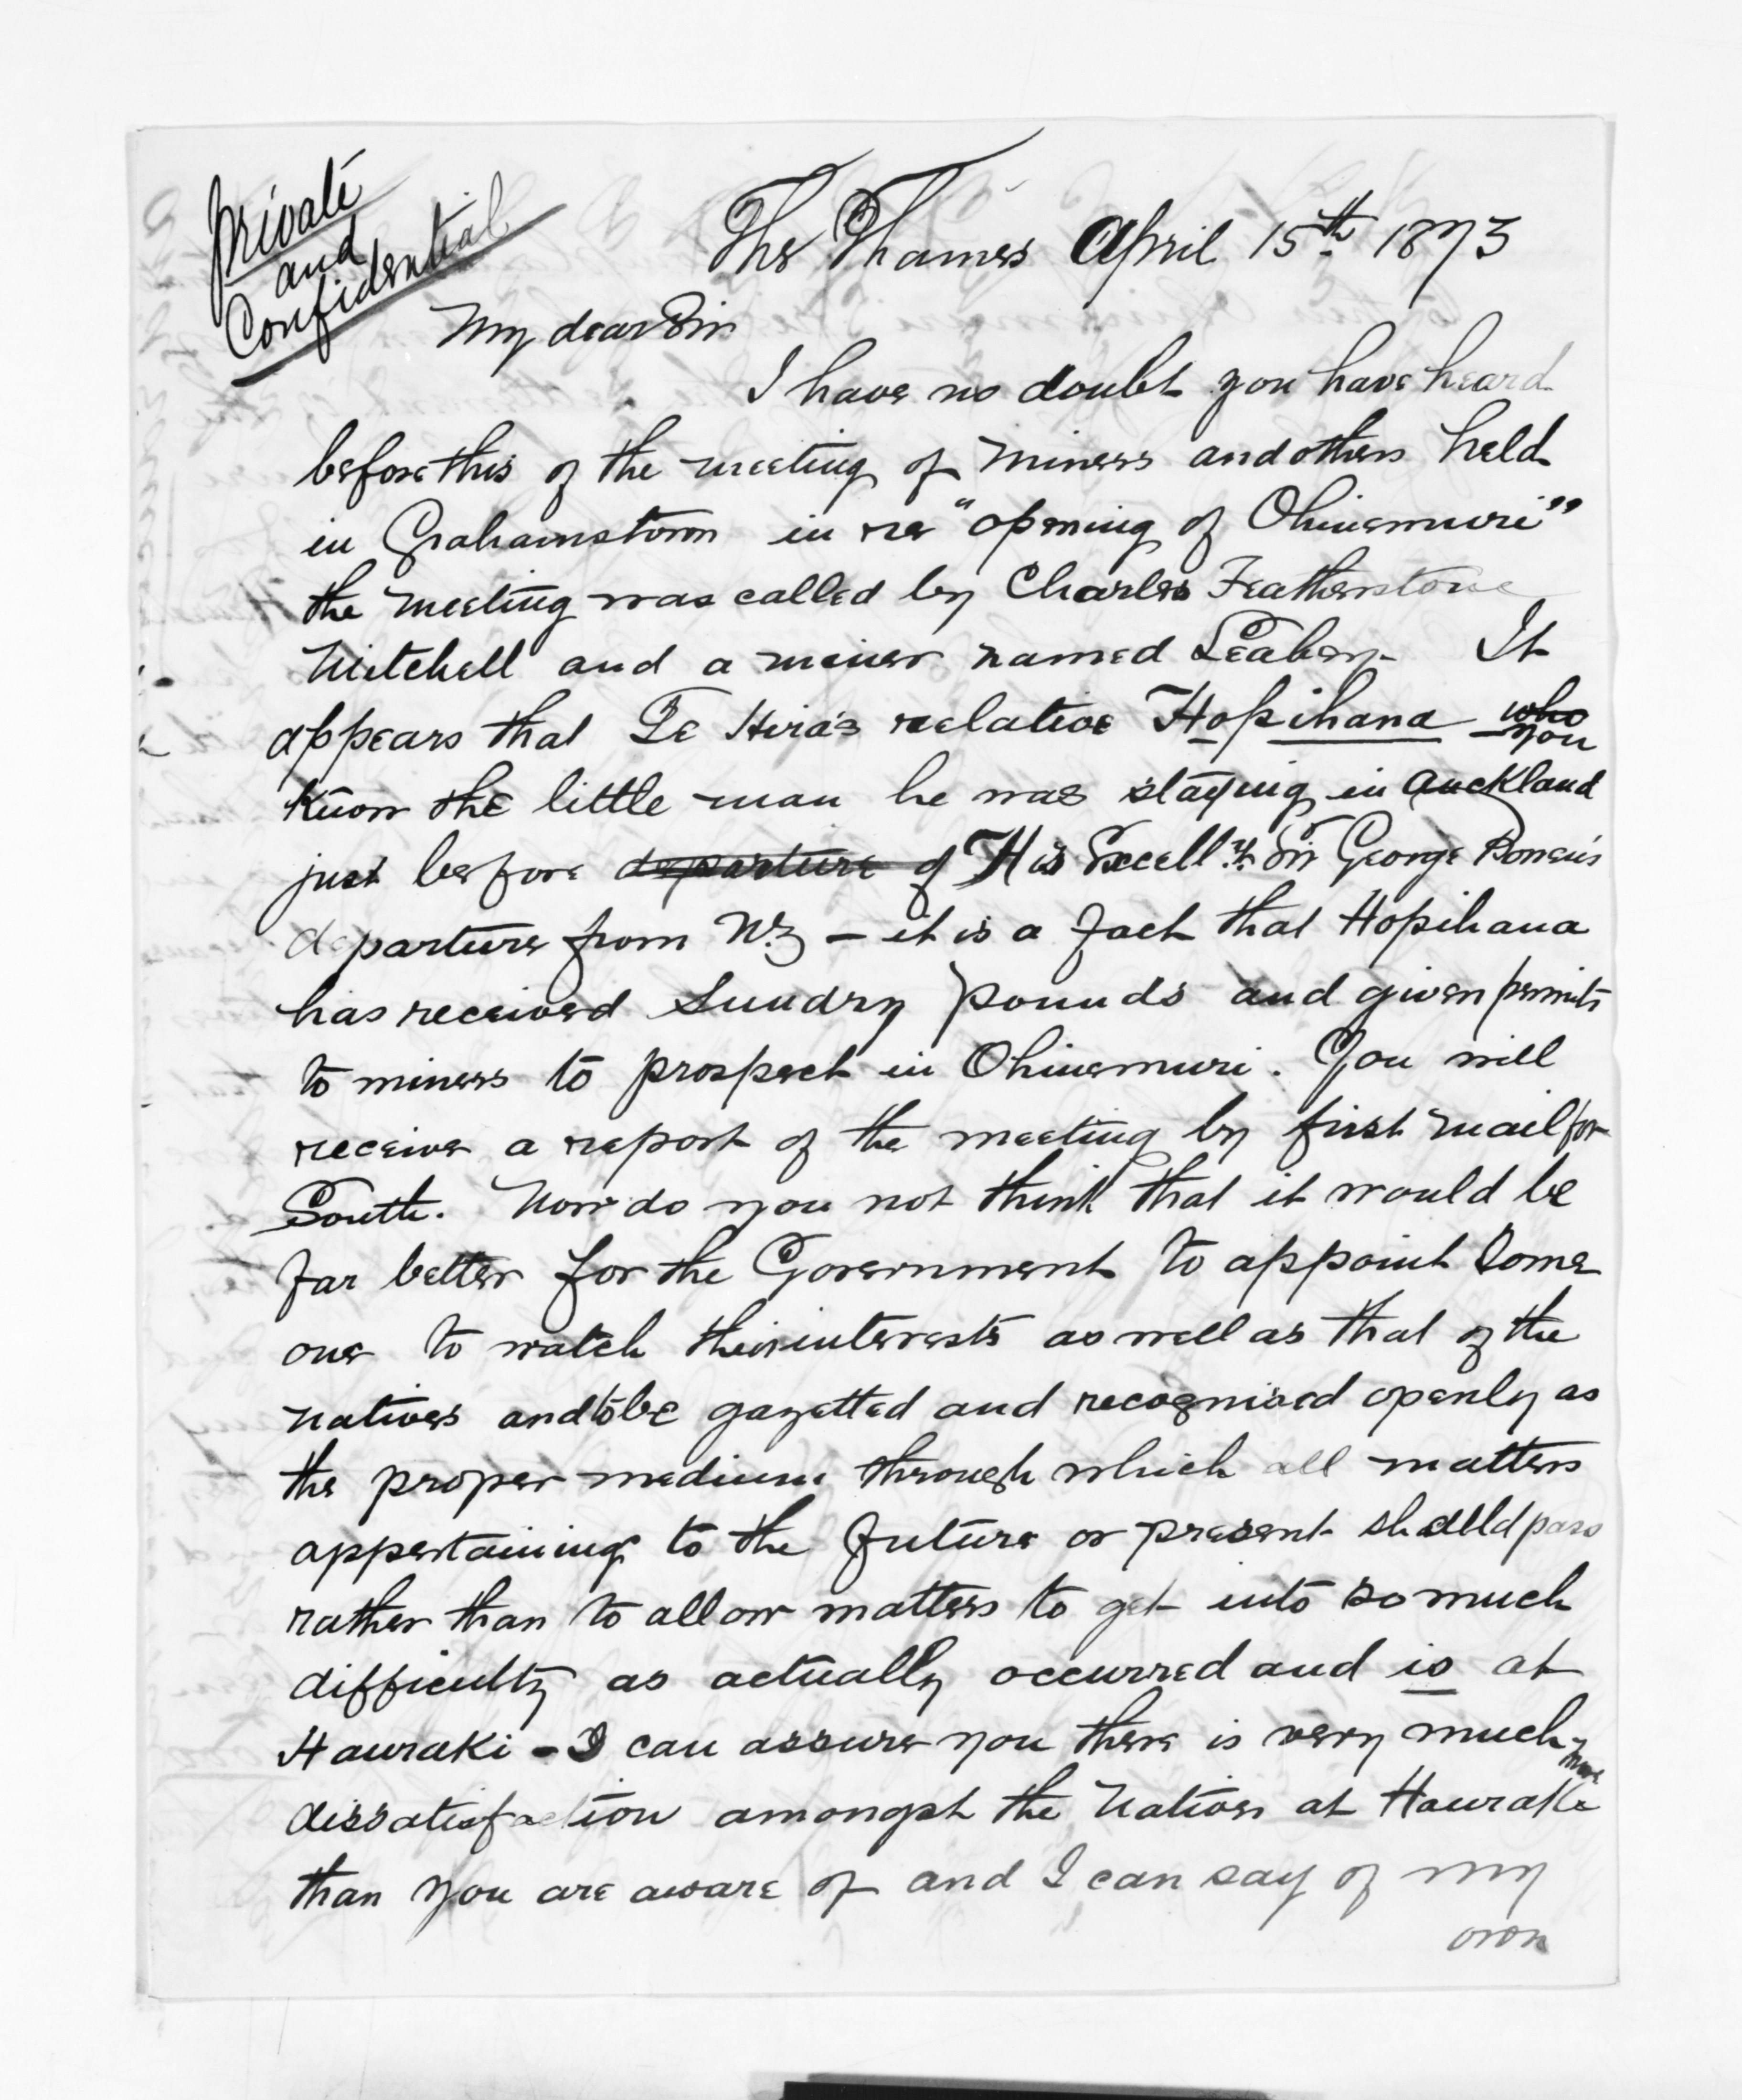 Private
and
Confidential
The Thames April 15th 1873
My dear Sir
I have no doubt you have heard
before this of the meeting of Miners and others held
in Grahamstown in re "opening of Ohinemuri"
the meeting was called by Charles Featherstone
Mitchell and a miner named Leahey It
appears that Te Hira's relative Hopihana who
you
know the little man he was staying in Auckland
just before departure of His Excelly Sir George Bowen's
departure from NZ - it is a fact that Hopihana
has received Sundry pounds and given permits
to miners to prospect in Ohinemuri. You will
receive a report of the meeting by first mail for
South. Now do you not think that it would be
far better for the Government to appoint some
one to watch their interests as well as that of the
natives and to be gazetted and recognised openly as
the proper medium through which all matters
appertaining to the future or present should pass
rather than to allow matters to get into so much
difficulty as actually occurred and is at
Hauraki - I can assure you there is very much
more
dissatisfaction amongst the Natives at Hauraki
than you are aware of and I can say of my
own